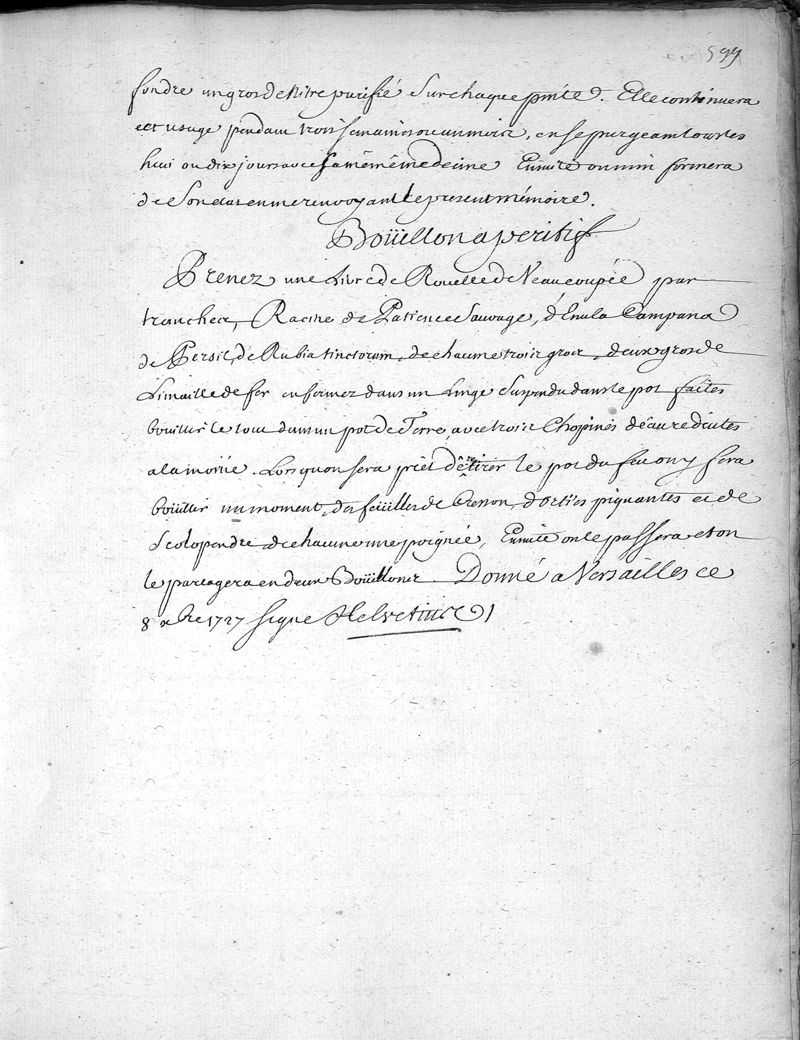 599
fondre un gros de Nitre purifié Sur chaque pinte. Elle continuera
cet usage pendant trois semaines ou un mois, en se purgeant tous les
huit ou dix jours avec sa même médecine Ensuite on m'informera
de son état en me renvoyant le present mémoire.
Boüillon aperitif
Prenez une Livre de Rouelle de Veau coupée par
tranches, Racine de Patience Sauvage, d'Enula Campana
de Persil, de Rubia tinctorum, de chaume trois gros, deux gros de
Limaille de fer enfermez dans un Linge Suspendu dans le pot faites
boüillir le tout dans un pot de Terre, avec trois Chopines d'eau reduites
a la moitié. Lors qu'on sera prêt de tirer le pot du feu on y fera
boüillir un moment, des feüilles de Cresson, d'orties piquantes et de
Scolopendre de chacune une poignée, Ensuite on le passera et on
le partagera en deux Boüillons. Donné a Versailles ce
8 xbre 1727 signé Helvetius